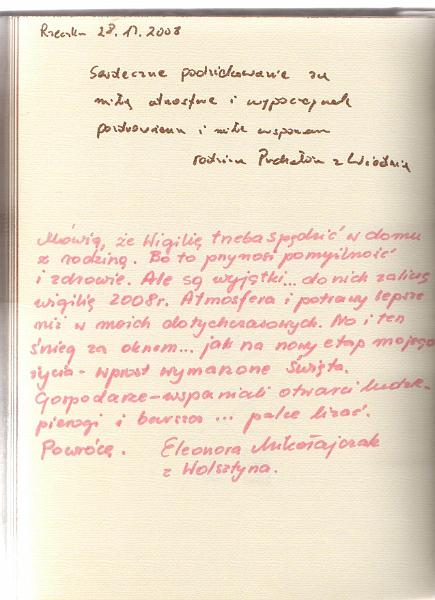 Rzeczka 28.12.2008
Serdeczne podziękowanie za
miłą atmosferę i wypoczynek
pozdrowienia i miłe wspomn
rodzina z Wiednia
Mówią, że Wigilię trzeba spędzić w domu
z rodziną. Bo to przynosi pomyślność
i zdrowie. Ale są wyjątki... do nich zaliczę
wigilię 2008r. Atmosfera i potrawy lepsze
niż w moich dotychczasowych. No i ten
śnieg za oknem... jak na nowy etap mojego
życia - wprost wymarzone Święta.
Gospodarze - wspaniali otwarci ludzie -
pierogi i barszcz ... palce lizać.
Powrócę. Eleonora Mikołajczak
z Wolsztyna.